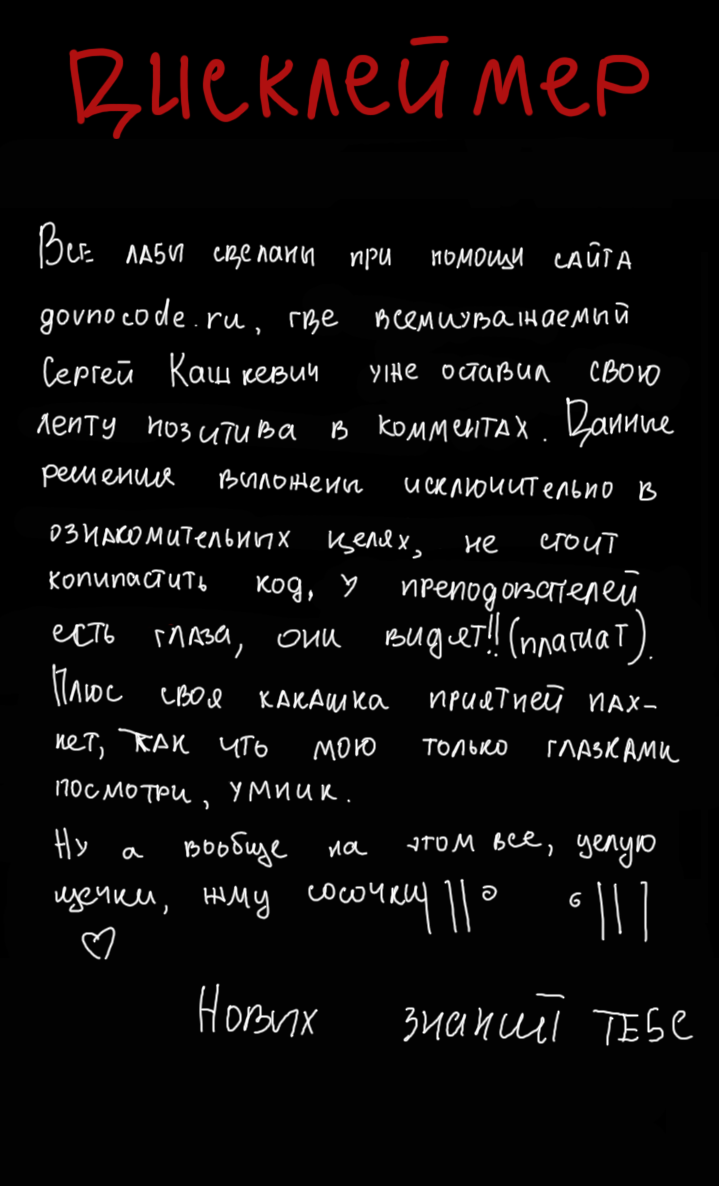 Дисклеймер
Все лабы сделаны при помощи сайта
govnocode.ru, где всемиуважаемый
Сергей Кашкевич уже оставил свою
лепту позитива в комментах. Данные
решения выложены исключительно в
ознакомительных целях, не стоит
копипастить код, у преподователей
есть глаза, они видят!! (плагиат).
Плюс своя какашка приятней пах-
нет, так что мою только глазками
посмотри, умник.
Ну а вообще на этом все, целую
щечки, жму сосочки
Новых знаний тебе